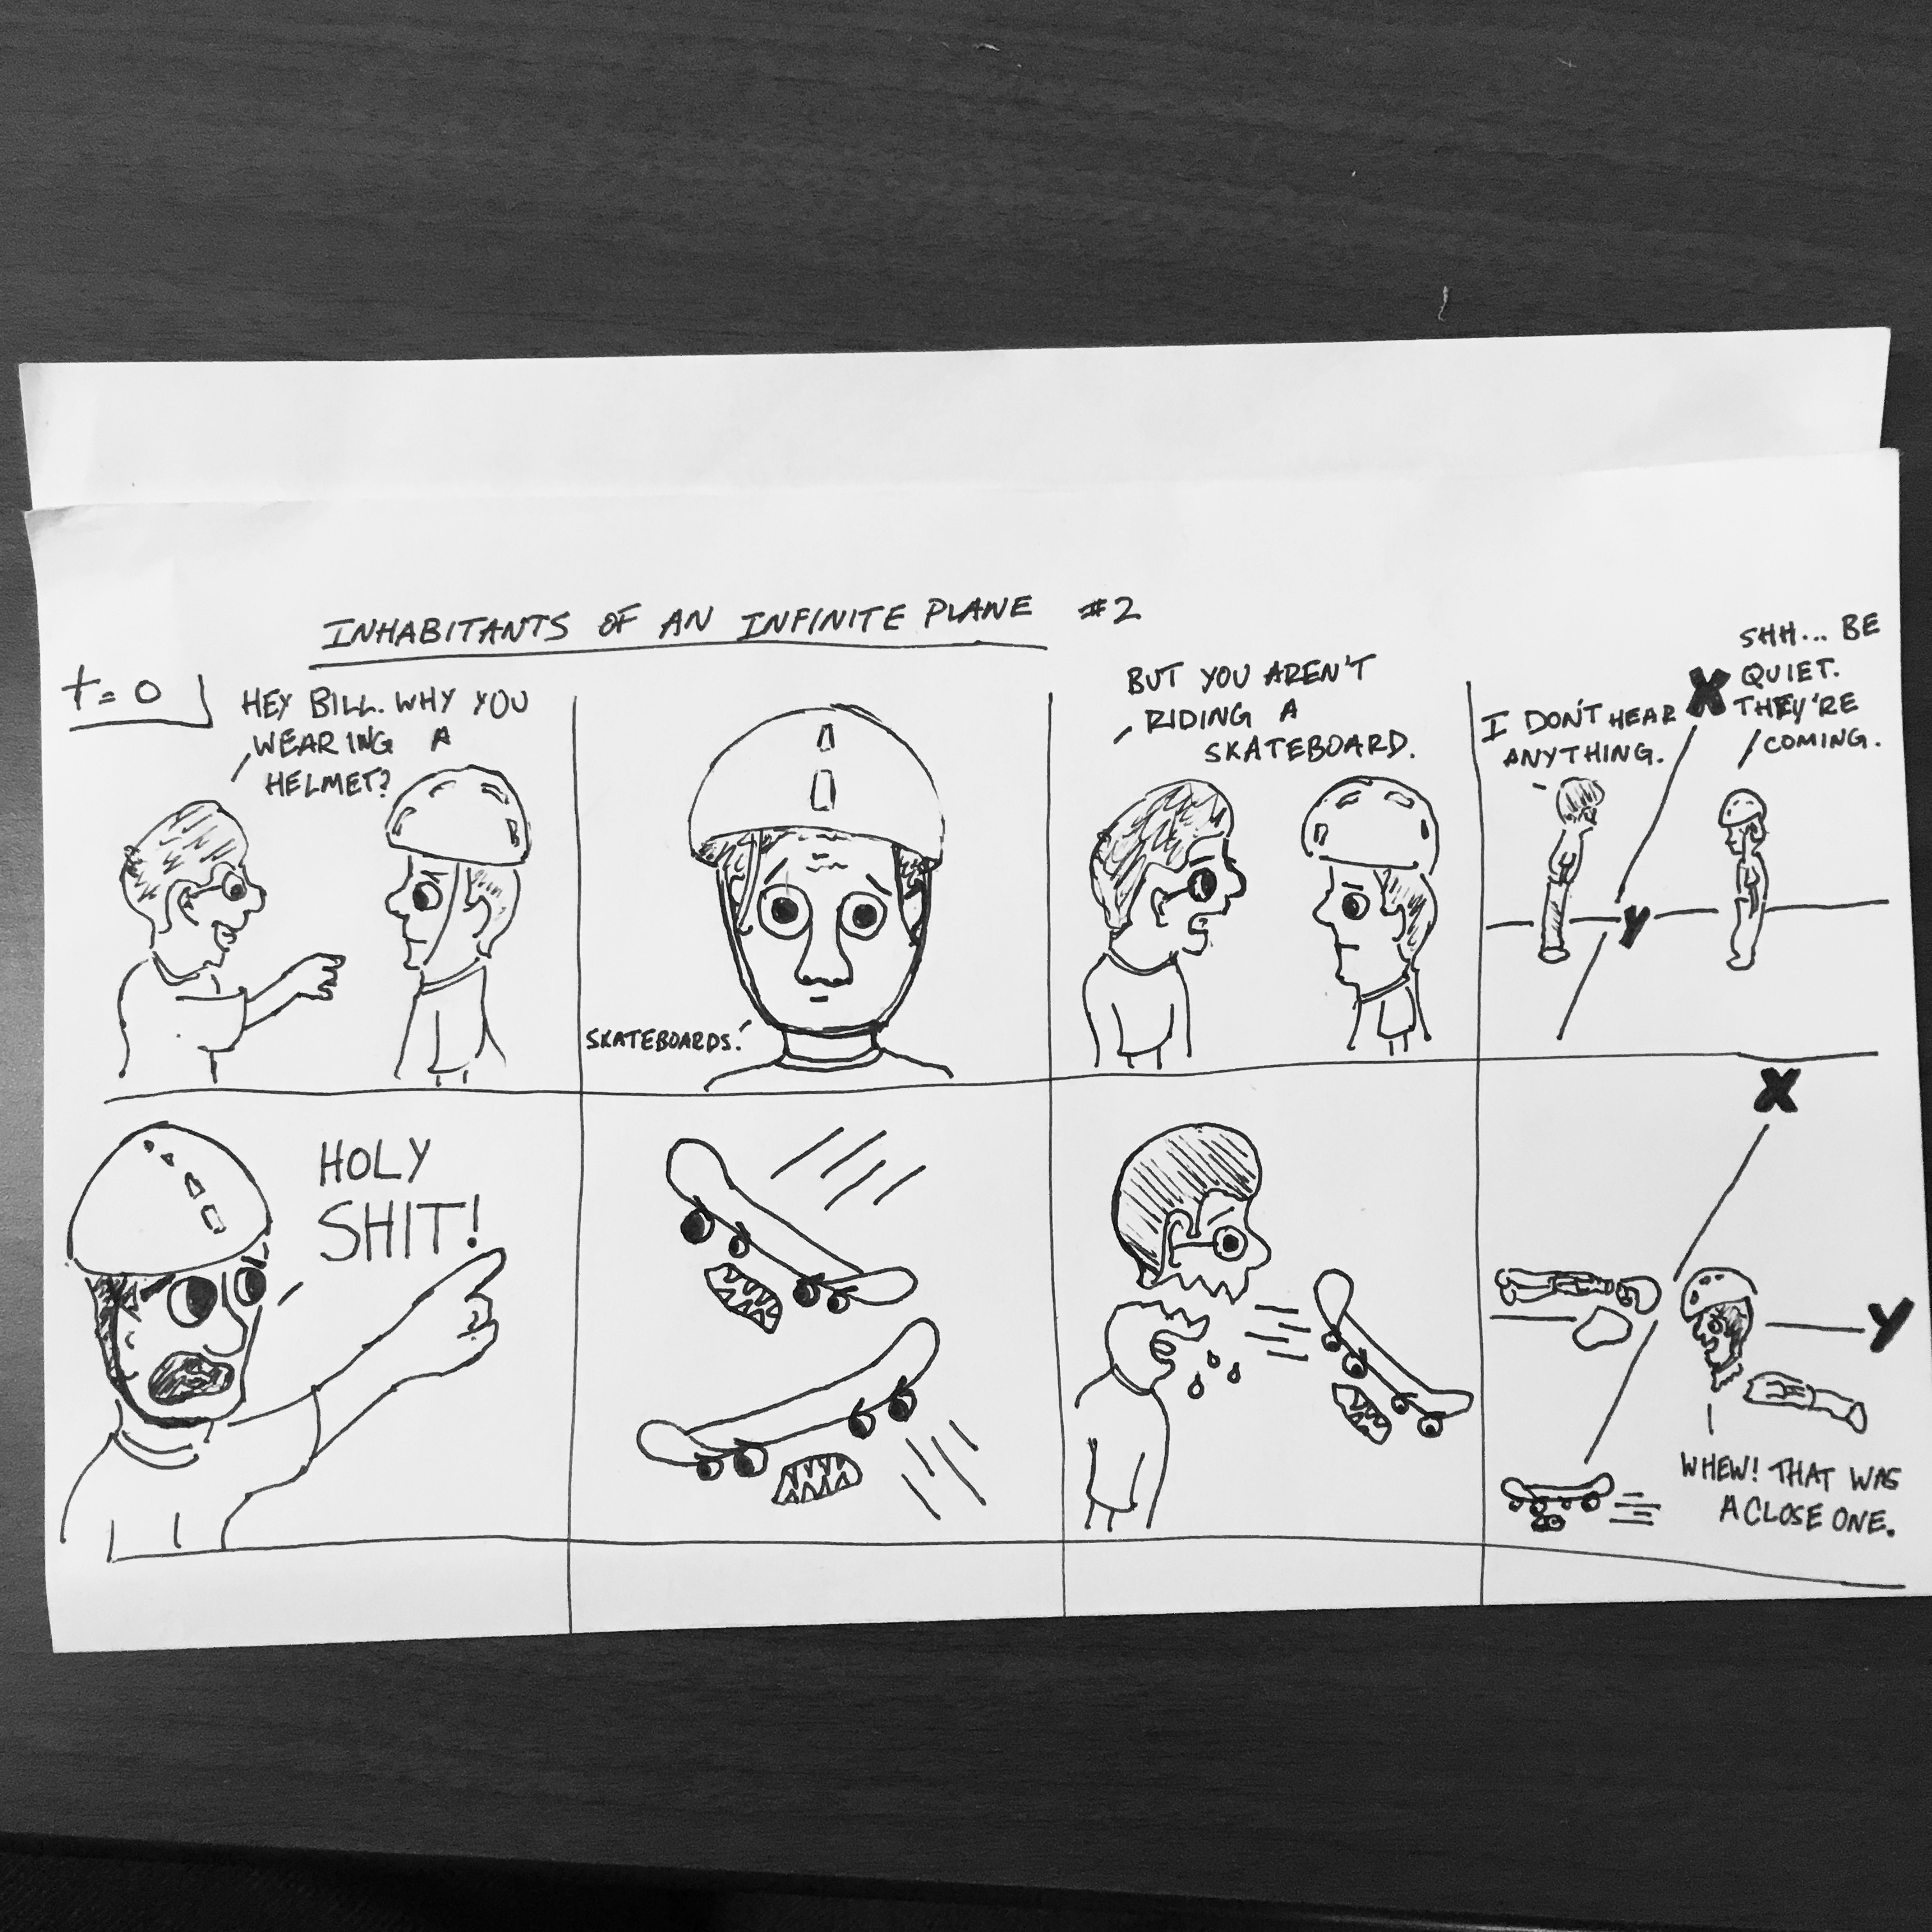 INHABITANTS OF AN INFINITE PLANE #2
t=0
HEY BILL. WHY YOU
WEARING A
HELMET?
SKATEBOARDS.
BUT YOU AREN'T
RIDING A
SKATEBOARD.
I DON'T HEAR
ANYTHING.
X
Y
SHH... BE
QUIET.
THEY'RE
COMING.
HOLY
SHIT!
X
Y
WHEW! THAT WAS
A CLOSE ONE.